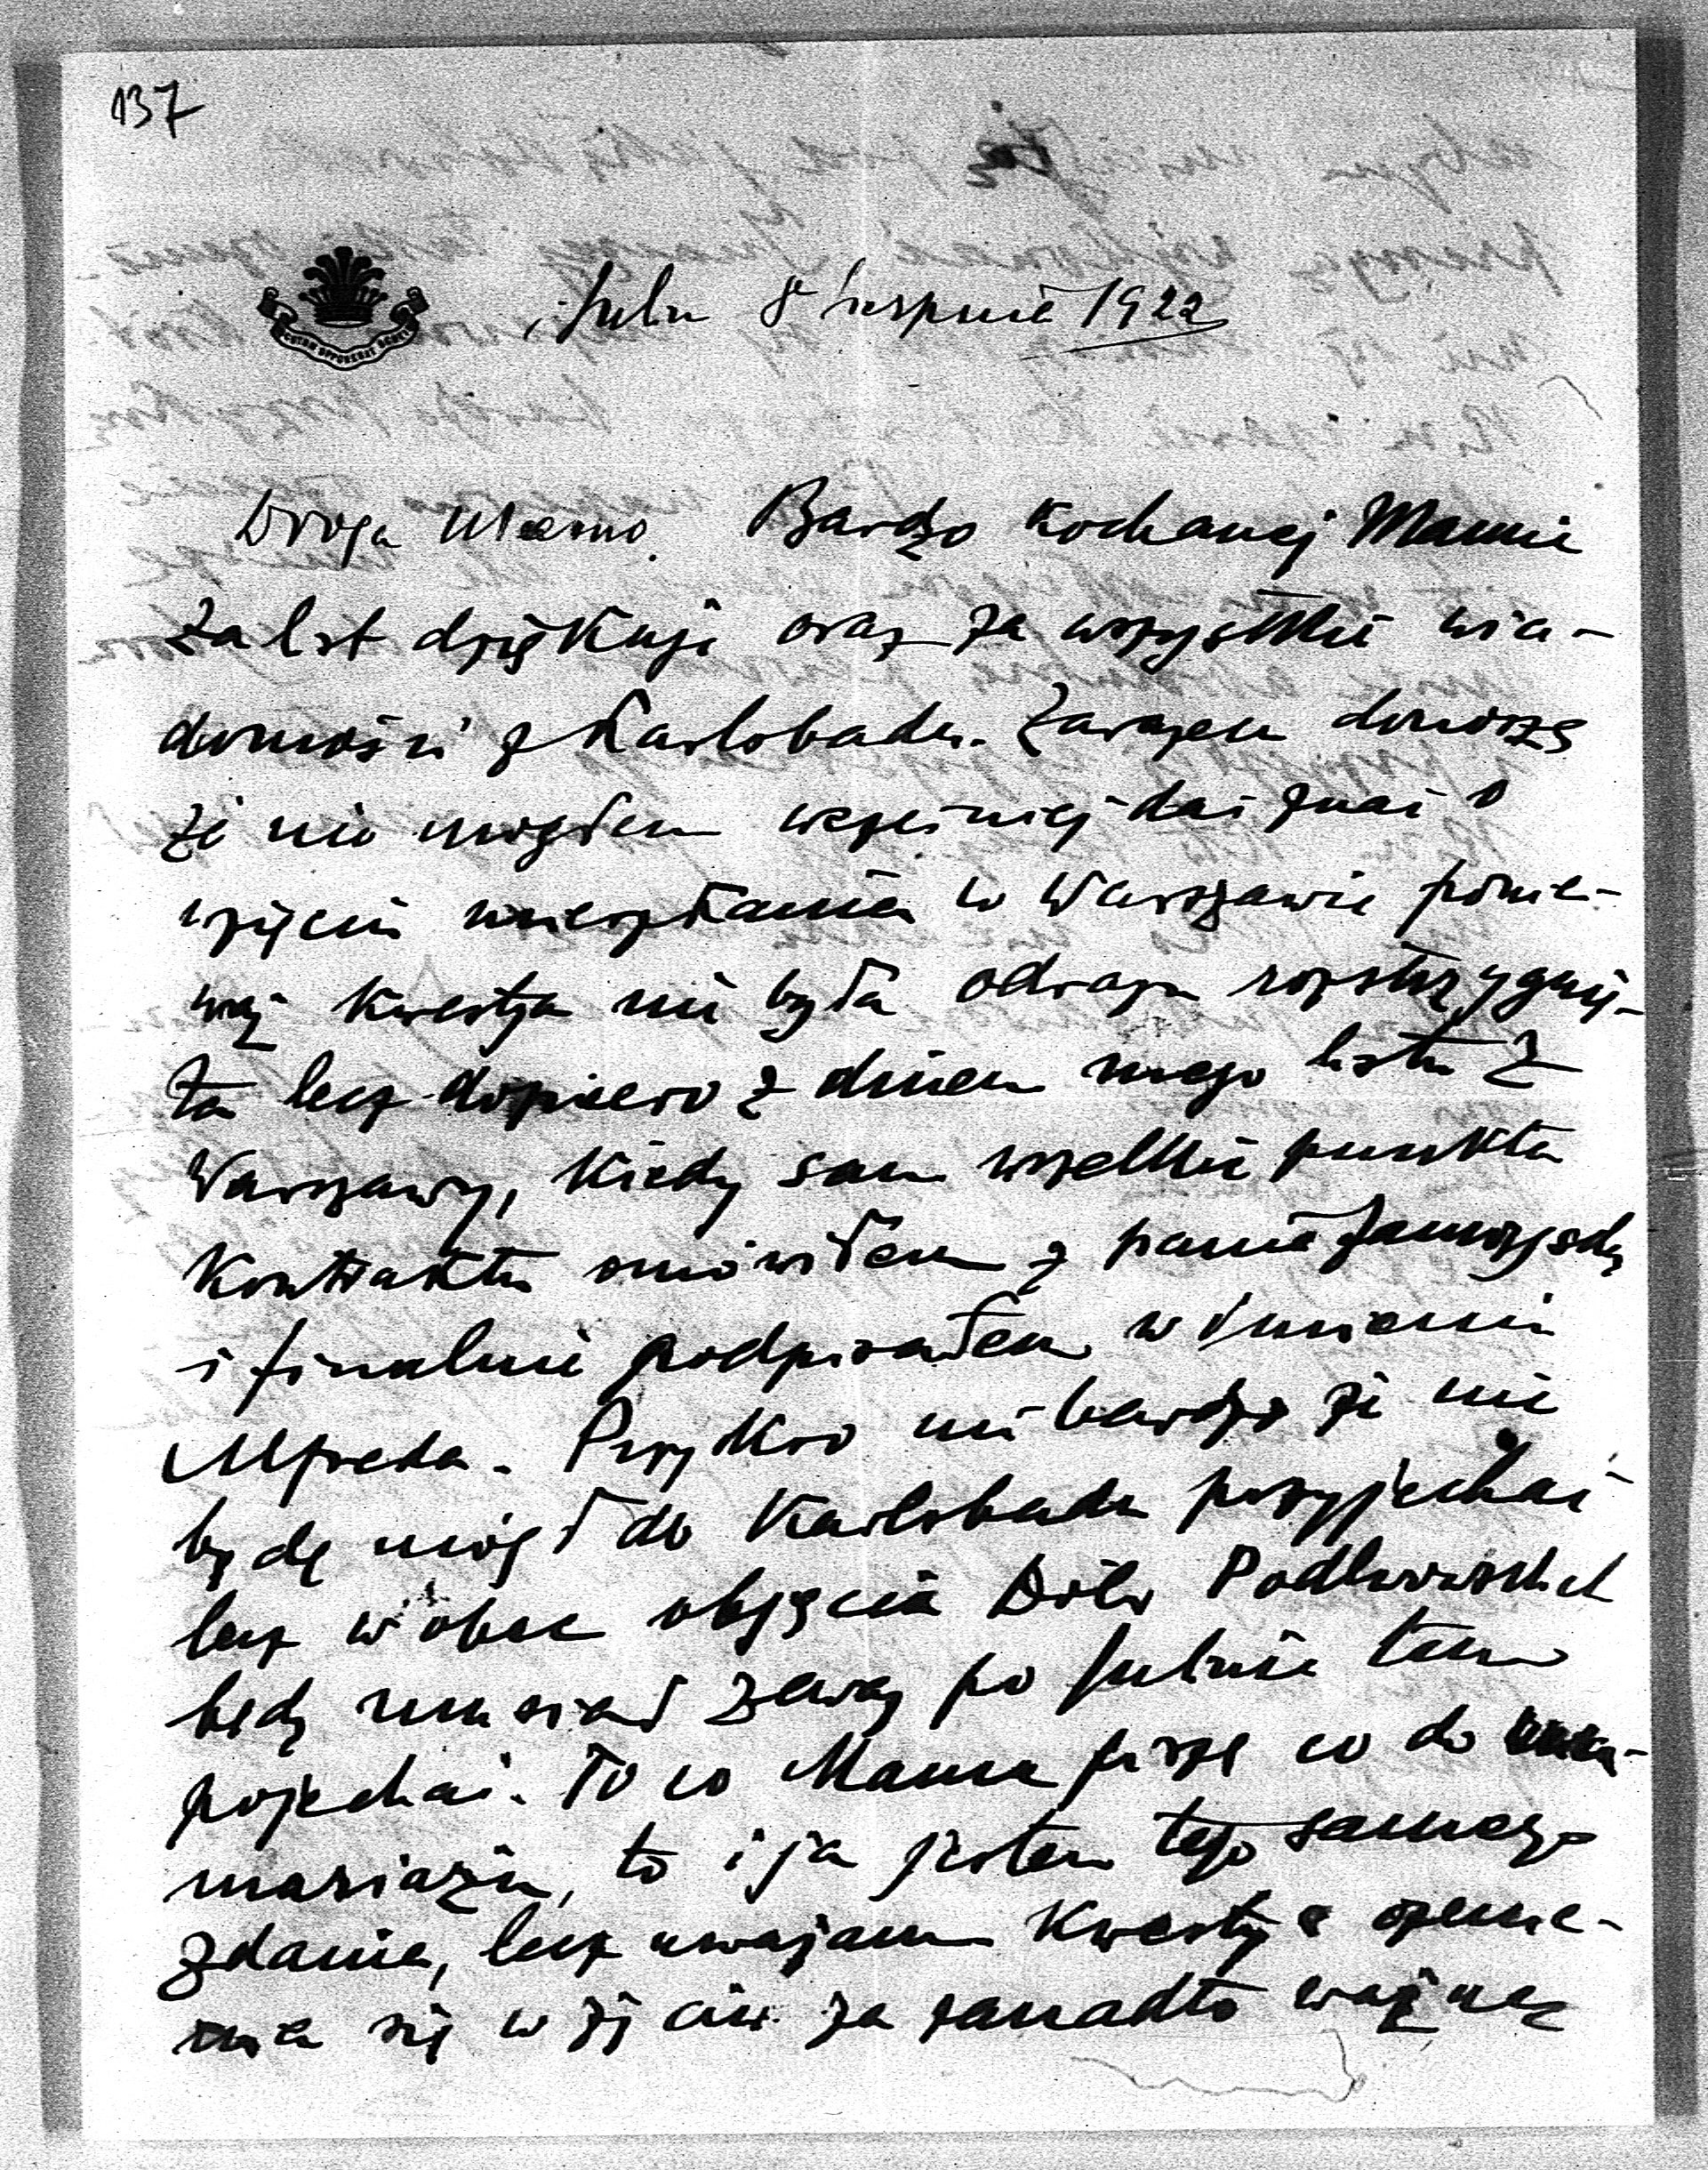 137
Julin 8 sierpnia 1922
Droga Mamo. Bardzo kochanej Mamie
za list dziękuję oraz za wszystkie wia-
domości z Karlsbadu. Zarazem donoszę
że nie mogłem wcześniej dać znać o
wzięciu mieszkania w Warszawie ponie-
waż kwestja nie była odrazu rozstrzygnię-
ta lecz dopiero z dniem mego listu z
Warszawy, kiedy sam wszelkie punkta
kontraktu omówiłem z panią Zamoyską
i finalnie podpisałem w imieniu
Alfreda. Przykro mi bardzo że nie
będę mógł do Karlsbadu przyjechać
lecz wobec objęcia Dóbr
będę musiał zaraz po Julinie tam
pojechać. To co Mama pisze co do
mariażu, to i ja jestem tego samego
zdania, lecz uważam kwestję ożenie-
nia się w życiu za zanadto ważną